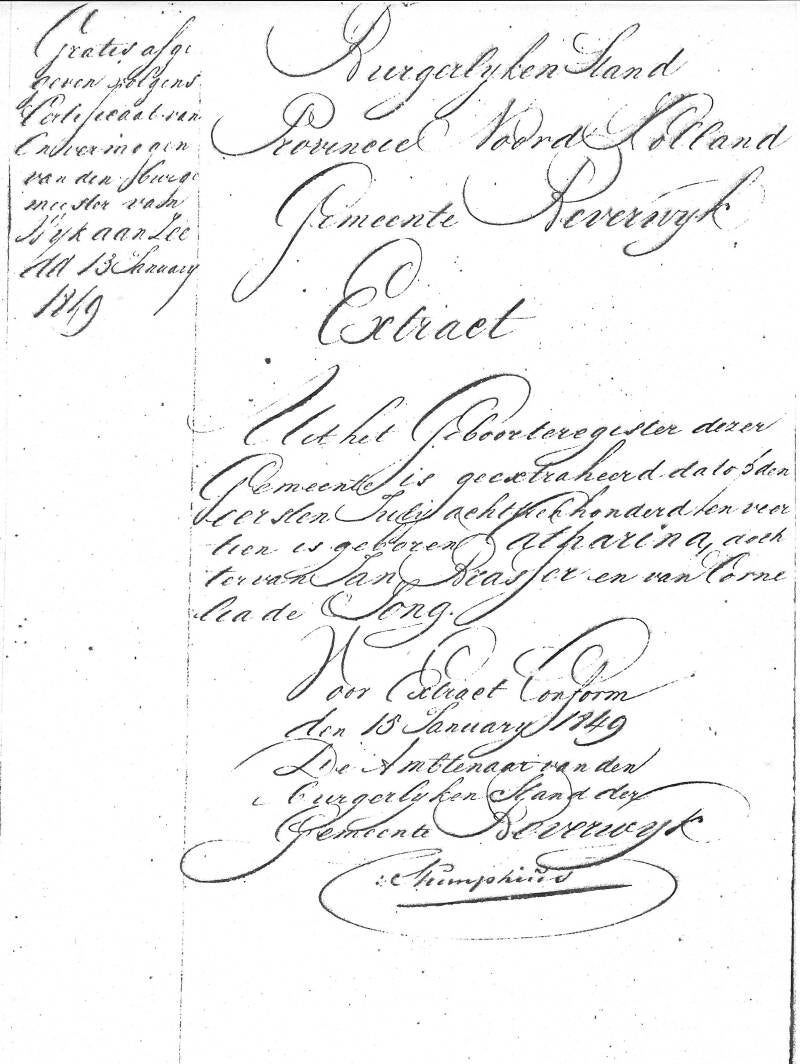 Gratis afge
geven volgens
Certificaat van
Onvermogen
van den Burge
meester van
Wyk aan Zee
dd 13 January
1849
Burgerlyken Stand
Provincie Noord Holland
Gemeente Beverwyk
Extract
Uit het Geboorteregister dezer
Gemeente is geextraheerd dat op den
eersten July achttienhonderd en veer
tien is geboren Catharina, doch
ter van Jan Brasser en van Corne
lia de Jong.
Voor Extract Conform
den 15 January 1849
De Ambtenaar van den
burgerlyken Stand der
Gemeente Beverwyk